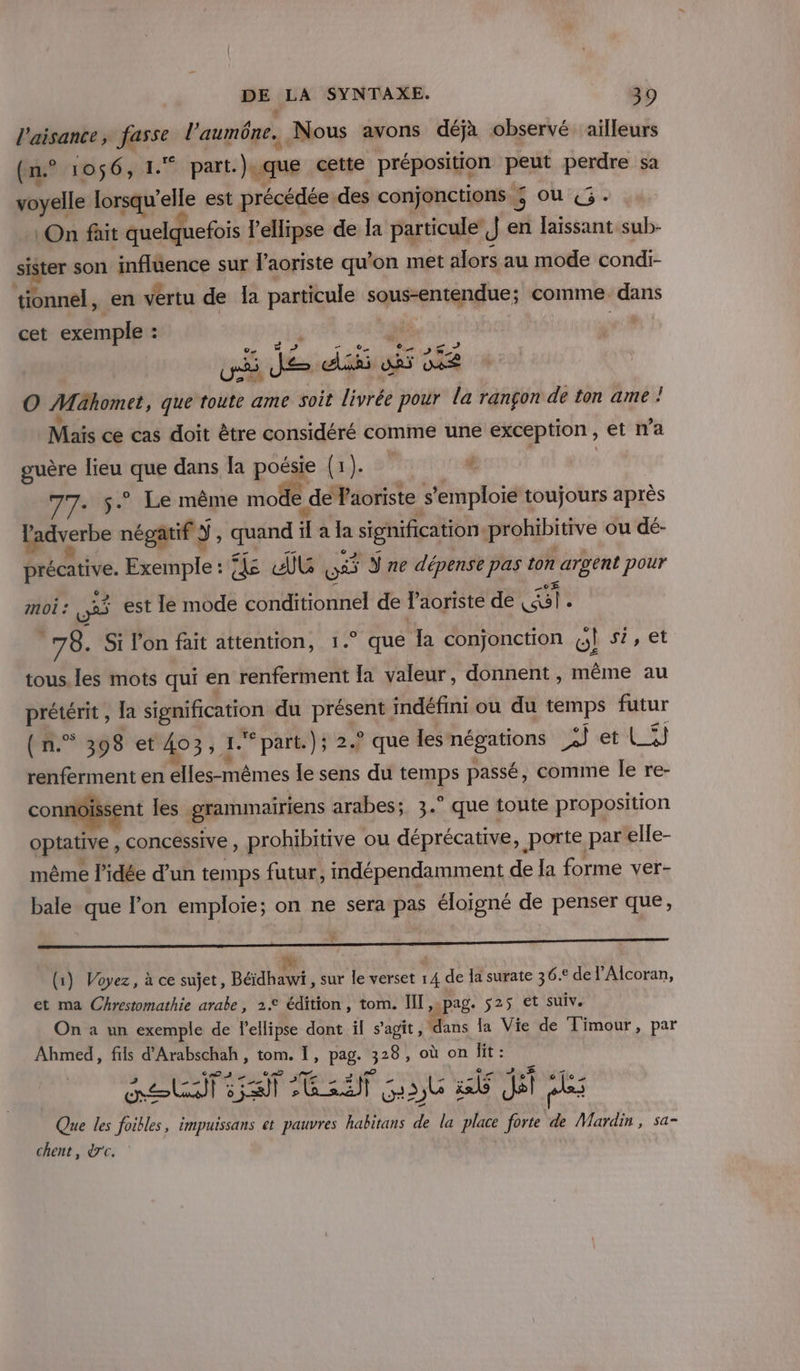 DE LA SYNTAXE. 39
l'aisance, fasse l'aumône. Nous avons déjà observé ailleurs
(n.° 1056, 1.re part.) que cette préposition peut perdre sa
voyelle lorsqu'elle est précédée des conjonctions وَ ou فَ.
On fait quelquefois l'ellipse de la particule لِ en laissant sub-
sister son influence sur l'aoriste qu'on met alors au mode condi-
tionnel, en vertu de la particule sous-entendue; comme dans
cet exemple :
مُحَمَّدُ تَفْدِ نَفْسَكَ كُلُّ نَفْسٍ
O Mahomet, que toute ame soit livrée pour la rançon de ton ame!
Mais ce cas doit être considéré comme une exception, et n'a
guère lieu que dans la poésie (1).
77. 5.° Le même mode de l'aoriste s'emploie toujours après
l'adverbe négatif لَا, quand il a la signification prohibitive ou dé-
précative. Exemple : لَا تُنْفِقْ مَالَكَ عَلَيَّ ne dépense pas ton argent pour
moi : تُنْفِقْ est le mode conditionnel de l'aoriste de أَنْفَقَ.
78. Si l'on fait attention, 1.° que la conjonction إِنْ si, et
tous les mots qui en renferment la valeur, donnent, même au
prétérit, la signification du présent indéfini ou du temps futur
(n.os 398 et 403, 1.re part.); 2.° que les négations لَمْ et لَمَّا
renferment en elles-mêmes le sens du temps passé, comme le re-
connoissent les grammairiens arabes; 3.° que toute proposition
optative, concessive, prohibitive ou déprécative, porte par elle-
même l'idée d'un temps futur, indépendamment de la forme ver-
bale que l'on emploie; on ne sera pas éloigné de penser que,
(1) Voyez, à ce sujet, Béïdhawi, sur le verset 14 de la surate 36.e de l'Alcoran,
et ma Chrestomathie arabe, 2.e édition, tom. III, pag. 525 et suiv.
On a un exemple de l'ellipse dont il s'agit, dans la Vie de Timour, par
Ahmed, fils d'Arabschah, tom. I, pag. 328, où on lit :
تَعْلَمْ أَهْلُ قَلْعَةِ مَارْدِينَ الضُّعَفَاءُ الْعَجَزَةُ الْمَسَاكِينُ
Que les foibles, impuissans et pauvres habitans de la place forte de Mardin, sa-
chent, &c.